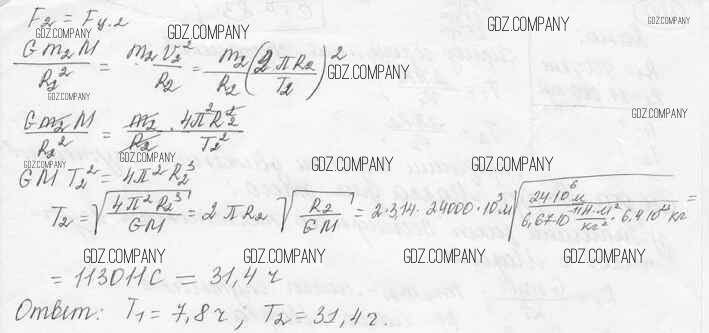 F₂ = Fц.2
GDZ.COMPANY GDZ.COMPANY GDZ.COMPANY
G m₂ M / R₂² = m₂ V₂² / R₂ = m₂ / R₂ (2πR₂ / T₂)²
GDZ.COMPANY GDZ.COMPANY
GDZ.COMPANY GDZ.COMPANY
G m₂ M / R₂² = m₂ / R₂ · 4π²R₂² / T₂²
GDZ.COMPANY GDZ.COMPANY GDZ.COMPANY GDZ.COMPANY
G M T₂² = 4π² R₂³
T₂ = √(4π² R₂³ / GM) = 2πR₂ √(R₂ / GM) = 2·3,14·24000·10³м √(24·10⁶м / 6,67·10⁻¹¹ Н·м²/кг² · 6,4·10²³ кг) =
GDZ.COMPANY GDZ.COMPANY GDZ.COMPANY GDZ.COMPANY
= 113011с = 31,4 ч
Ответ: T₁ = 7,8 ч; T₂ = 31,4 ч.